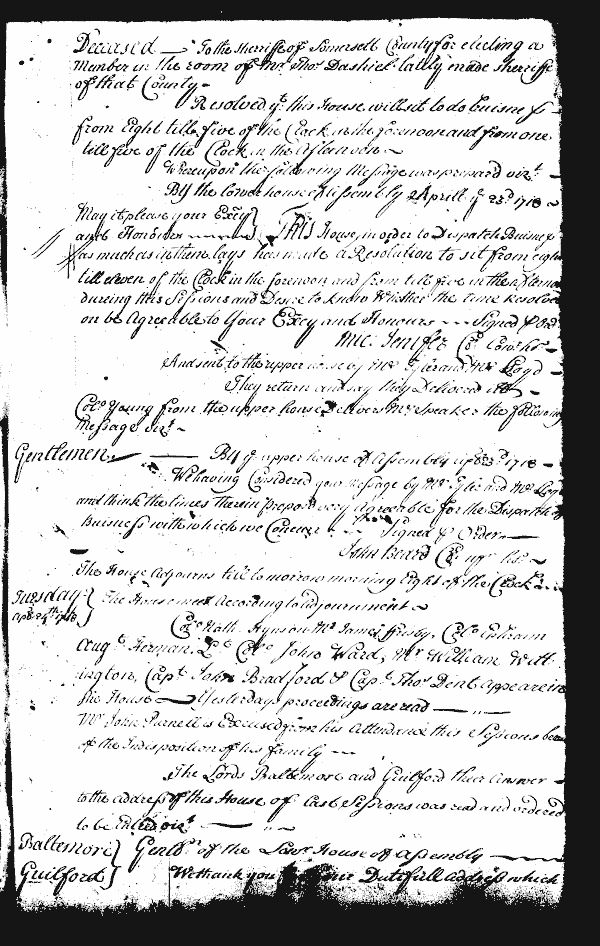 Deceased — To the sherriffe of Somersett County for electing a
Member in the room of Mr. Thos. Dashiel lately made sherriffe
of that County –
Resolved yt. this House will sit to do buisness
from Eight till five of the Clock in the forenoon and from one
till five of the Clock in the Afternoon ~
Whereupon the following Message was prepared vizt. –
By the lower house of Assembly Aprill ye 23d 1718 ~
May it please your Excy
and Honours } This House, in order to Dispatch Buisness
as much as in them lays has made a Resolution to sit from eight
till eleven of the Clock in the forenoon and from till five in the afterno
dureing this Sessions and Desire to know Whither the time Resolv
on be Agreable to Your Excy and Honours --- Signed p Ord
Mic: Jenifer Cl.
And sent to the upper house by Mr. Tyler and Mr. Lloyd –
They return and say they Delivered it
Colo. Young from the upper house Delivers Mr. Speaker the following
Message vizt. ~
Gentlemen — By ye upper house of Assembly 1718 –
We having Considered your Message by Mr. and Mr. Lloyd
and think the times therein very Agreable for the Dispatch of
Buisness with which we Concurr Signed p Order —
John Beard Cl. up. ho. ~
The House Adjourns till to morrow morning Eight of the Clock
Tuesday
Apr. 24th 1718 } The House meet According to adjournment ~
Colo. Nath. Hynson Mr James Frisby, Colo. Ephraim
Augt. Herman, Lt. Colo. John Ward, Mr William Whitt
ington, Capt. John Bradford & Capt. Thos. Dent Appeare in
the House — Yesterdays proceedings are read —
Mr John Purnell is Excused from his Attendance this Sessions
of the Indisposition of his family ---
The Lords Baltemore and Guilford their Answer –
to the address of this House of last Sessions was read and ordered
to be entered vizt. —
Baltemore } Gentlm. of the Lower House of Assembly —
Guilford } We thank you Dutifull address which